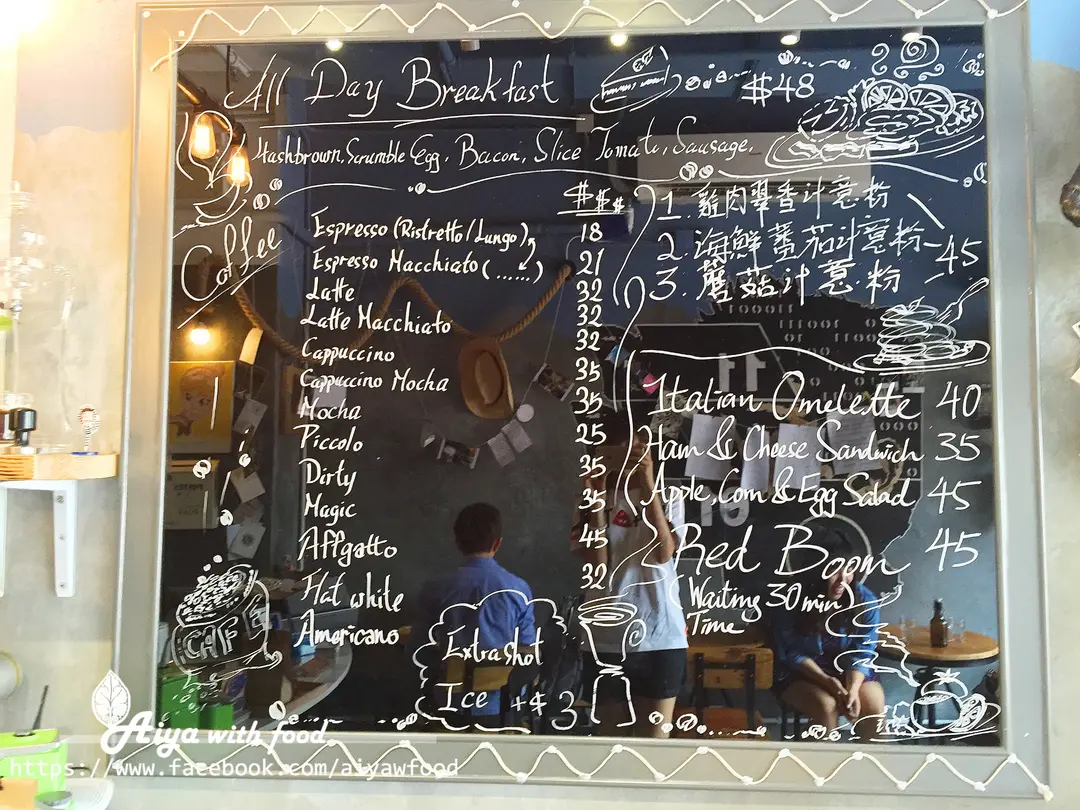 All Day Breakfast $48
Hashbrown, Scrumble Egg, Bacon, Slice Tomato, Sausage,
Coffee
$$$
Espresso (Ristretto/Lungo) 18
Espresso Macchiato (......) 21
Latte 32
Latte Macchiato 32
Cappuccino 32
Cappuccino Mocha 35
Mocha 35
Piccolo 25
Dirty 35
Magic 35
Affgatto 45
Flat white 32
Americano
CAF
Extra shot
Ice +$3
1. 雞肉 香計薏粉
2. 海鮮蕃茄計薏粉 -45
3. 蘑菇計薏粉
Italian Omelette 40
Ham & Cheese Sandwich 35
Apple, Corn & Egg Salad 45
Red Boom 45
(Waiting 30min)
Time
Aiya with food
https://www.facebook.com/aiyawfood